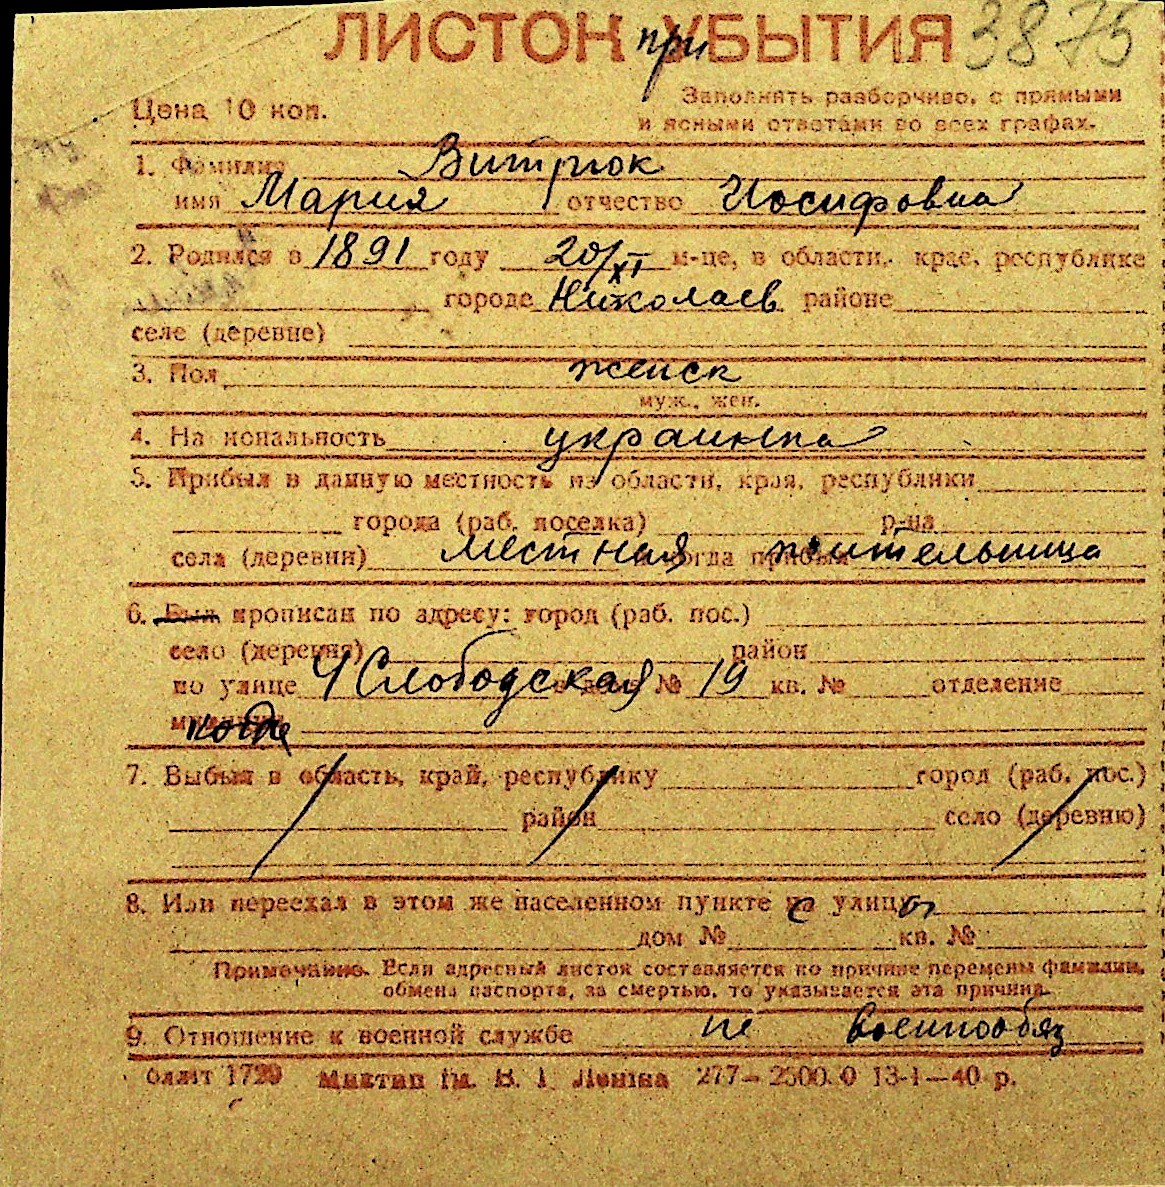 ЛИСТОК при УБЫТИЯ 3875
Цена 10 коп. Заполнять разборчиво, с прямыми
и ясными ответами во всех графах.
1. Фамилия Витрюк
имя Мария отчество Иосифовна
2. Родился в 1891 году 20/XI м-це, в области, крае, республике
городе Николаев районе
селе (деревне)
3. Пол женск
муж., жен.
4. Национальность украинка
5. Прибыл в данную местность из области, края, республики
города (раб. поселка) р-на
села (деревни) местная когда прибыл жительница
6. Был прописан по адресу: город (раб. пос.)
село (деревня) район
по улице 4 Слободская дом № 19 кв. № отделение
милиции когда
7. Выбыл в область, край, республику город (раб. пос.)
район село (деревню)
8. Или переехал в этом же населенном пункте на с улицы
дом № кв. №
Примечание. Если адресный листок составляется по причине перемены фамилии,
обмена паспорта, за смертью, то указывается эта причина.
9. Отношение к военной службе не военнообяз
1799 ім. В. І. Леніна 277—2500.0 13-I—40 р.